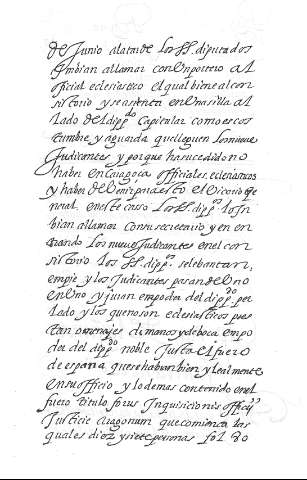 de Junio a la tarde los SS. diputados
embian a llamar con un portero al
official eclesiastico el qual biene al con
sistorio y se asienta en una silla al
lado del dippdo capitular como es cos
tumbre y aguarda que lleguen los nueve
Judicantes y porque ha sucedido no
haber en Caragoça officiales eclesiasticos
y haber de benir para esto el Vicario ge
neral, en este caso los SS. dippos. lo in
bian a llamar con su secretario y en en
trando los nueve Judicantes en el con
sistorio los SS. dippos. se lebantan,
en pie y los Judicantes pasan de uno
en uno y juran en poder del dippdo pre
lado y los que no son eclesiasticos pres
tan omenajes de manos y de boca en po
der del dippdo noble Justa el fuero
de españa que se habran bien y lealmente
en su officio y lo demas contenido en el
fuero titulo forus Inquisicionis officij
Justicie aragonum que comiença las
quales diez y siete personas fol 80